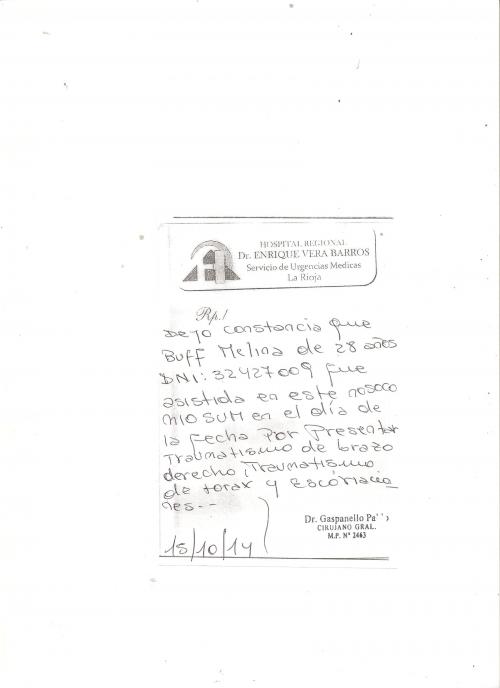 HOSPITAL REGIONAL
Dr. ENRIQUE VERA BARROS
Servicio de Urgencias Medicas
La Rioja
Rp./
Dejo constancia que
Buff Melina de 28 años
DNI: 32427009 fue
asistida en este nosoco
mio SUM en el día de
la fecha Por Presentar
Traumatismo de brazo
derecho, Traumatismo
de torax y Escoriacio
nes.--
Dr. Gaspanello Pa
CIRUJANO GRAL.
M.P. Nº 2463
15/10/14